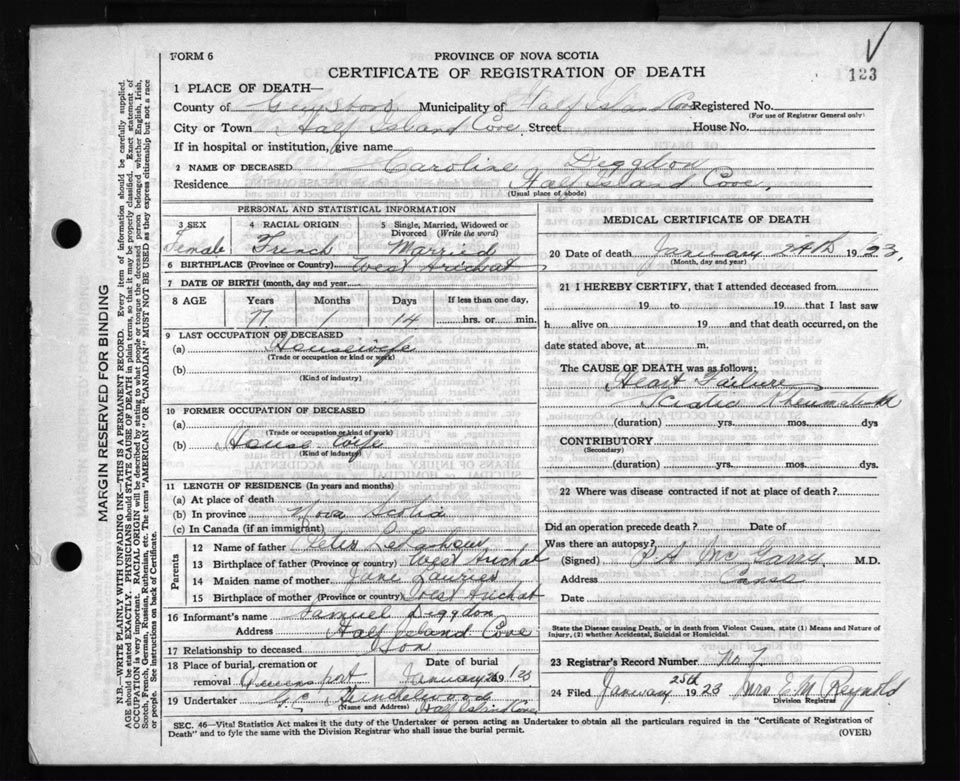 FORM 6
PROVINCE OF NOVA SCOTIA
CERTIFICATE OF REGISTRATION OF DEATH
123
1 PLACE OF DEATH—
County of Guysboro Municipality of Half Island Cove Registered No.
(For use of Registrar General only)
City or Town Half Island Cove Street House No.
If in hospital or institution, give name
2 NAME OF DECEASED Caroline Diggdon
Residence Half Island Cove,
(Usual place of abode)
PERSONAL AND STATISTICAL INFORMATION
3 SEX 4 RACIAL ORIGIN 5 Single, Married, Widowed or Divorced (Write the word)
Female French Married
6 BIRTHPLACE (Province or Country) West Arichat
7 DATE OF BIRTH (month, day and year)
8 AGE Years Months Days If less than one day,
77 1 14 hrs. or min.
9 LAST OCCUPATION OF DECEASED
(a) Housewife
(Trade or occupation or kind or work)
(b)
(Kind of industry)
10 FORMER OCCUPATION OF DECEASED
(a)
(Trade or occupation or kind of work)
(b) House Wife
(Kind of industry)
11 LENGTH OF RESIDENCE (In years and months)
(a) At place of death
(b) In province Nova Scotia
(c) In Canada (if an immigrant)
Parents
12 Name of father Peter
13 Birthplace of father (Province or country) West Arichat
14 Maiden name of mother Jane
15 Birthplace of mother (Province or country) West Arichat
16 Informant's name Samuel Diggdon
Address Half Island Cove
17 Relationship to deceased Son
18 Place of burial, cremation or removal Queensport
Date of burial January 23
19 Undertaker G.C. Hinchelwood
(Name and Address) Half Island Cove
MEDICAL CERTIFICATE OF DEATH
20 Date of death January 24th 1923,
(Month, day and year)
21 I HEREBY CERTIFY, that I attended deceased from
19 to 19 that I last saw
h alive on 19 and that death occurred, on the
date stated above, at m.
The CAUSE OF DEATH was as follows:
Heart Failure
(duration) yrs. mos. dys
CONTRIBUTORY
(Secondary)
(duration) yrs. mos. dys.
22 Where was disease contracted if not at place of death?
Did an operation precede death? Date of
Was there an autopsy?
(Signed) P A McGarry M.D.
Address Canso
Date
State the Disease causing Death, or in death from Violent Causes, state (1) Means and Nature of
Injury, (2) whether Accidental, Suicidal or Homicidal.
23 Registrar's Record Number No 7.
24 Filed January 25th 1923 Mrs E M Reynold
Division Registrar
SEC. 46—Vital Statistics Act makes it the duty of the Undertaker or person acting as Undertaker to obtain all the particulars required in the "Certificate of Registration of
Death" and to fyle the same with the Division Registrar who shall issue the burial permit.
(OVER)
MARGIN RESERVED FOR BINDING
N.B.—WRITE PLAINLY WITH UNFADING INK—THIS IS A PERMANENT RECORD. Every item of information should be carefully supplied.
AGE should be stated EXACTLY. PHYSICIANS should STATE CAUSE OF DEATH in plain terms, so that it may be properly classified. Exact statement of
OCCUPATION is very important. RACIAL ORIGIN will be described by stating to what people or tongue the deceased person belonged whether English, Irish,
Scotch, French, German, Russian, Ruthenian, etc. The terms "AMERICAN" OR "CANADIAN" MUST NOT BE USED as they express citizenship but not a race
or people. See instructions on back of Certificate.